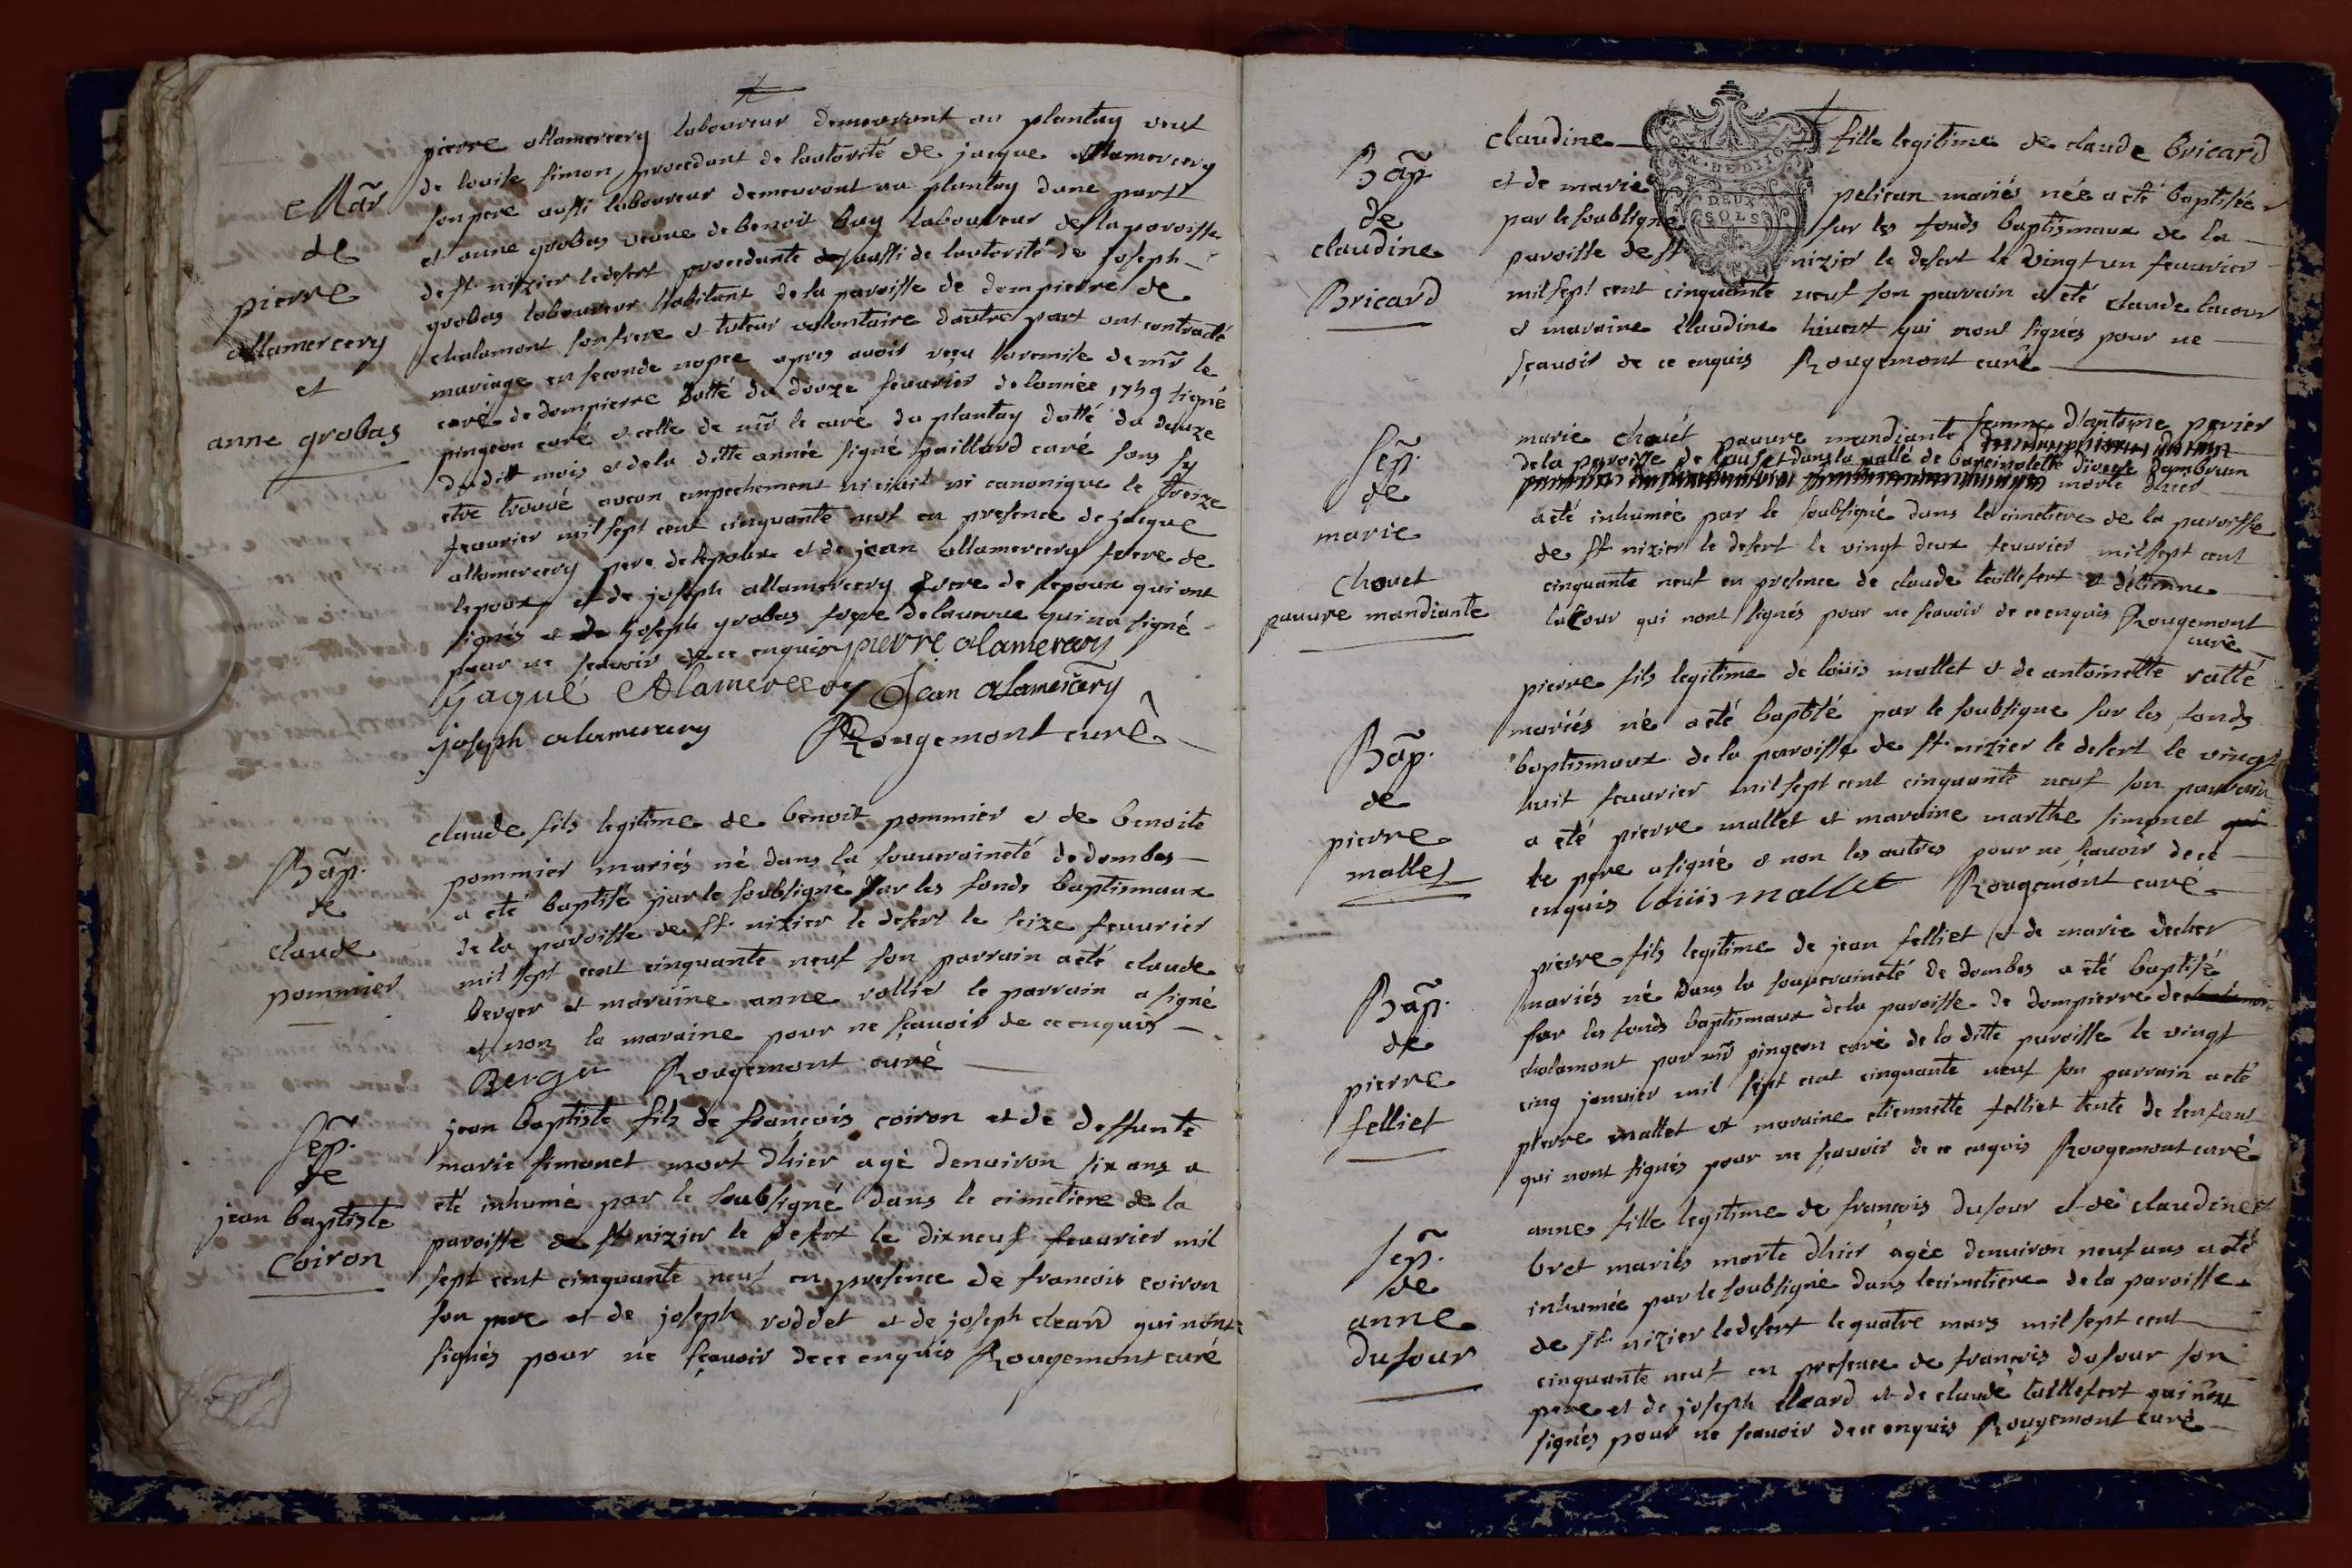 Mar
de
pierre
allamercery
et
anne grobas
pierre allamercery laboureur demeurant au plantay veuf
de louise simon, procedant de lautorité de jacque allamercery
son pere aussi laboureur demeurant au plantay dune part
et anne grobas veuve de benoit buy laboureur de la paroisse
de st nizier le desert procedante aussi de lautorité de joseph
grobas laboureur habitant de la paroisse de dompierre de
chalamont son frere et tuteur volontaire dautre part ont contracté
mariage en seconde nopce apres avoir reçu la remise de mr le
curé de dompierre datté du douze feuurier de lannée 1759 signé
pingeon curé et celle de mr le curé du plantay datté du douze
du dit mois et de la ditte année signé paillard curé sans sy
etre trouvé aucun empechement ni civil ni canonique le treize
feuurier mil sept cent cinquante neuf en presence de jacque
allamercery pere de lepoux et de jean allamercery frere de
lepoux et de joseph allamercery frere de lepoux qui ont
signés et de joseph grobas frere de la veuve qui na signé
pour ne sçavoir de ce enquis pierre alamercery
jaque Alamercery Jean alamercery
joseph alamercery Rougemont curé
Bap.
de
claude
pommier
claude fils legitime de benoit pommier et de benoite
pommier mariés né dans la souveraineté de dombes
a eté baptisé par le soubsigné sur les fonds baptismaux
de la paroisse de st nizier le desert le seize feuurier
mil sept cent cinquante neuf son parrain a eté claude
berger et maraine anne rollier le parrain a signé
et non la maraine pour ne sçavoir de ce enquis
Berger Rougemont curé
Sep.
de
jean baptiste
Coiron
jean baptiste fils de françois coiron et de deffunte
marie simonet mort dhier agé denviron six ans a
eté inhumé par le soubsigné dans le cimetiere de la
paroisse de st nizier le desert le dixneuf feuurier mil
sept cent cinquante neuf en presence de francois coiron
son pere et de joseph roddet et de joseph cleard qui nont
signés pour ne sçavoir de ce enquis Rougemont curé
GN. DE DIJON
DEUX
SOLS
Bap
de
claudine
Bricard
claudine fille legitime de claude Bricard
et de marie pelican mariés née a eté baptisée
par le soubsigné sur les fonds baptismaux de la
paroisse de st nizier le desert le vingt un feuurier
mil sept cent cinquante neuf son parrain a eté claude lacour
et maraine claudine hivert qui nont signés pour ne
sçavoir de ce enquis Rougemont curé
Sep.
de
marie
chouet
pauure mandiante
marie chouet pauure mandiante femme d'antoine perier
de la paroisse de dans la vallé de barcinolette diocese dambrun
morte dhier
a eté inhumée par le soubsigné dans le cimetiere de la paroisse
de st nizier le desert le vingt deux feuurier mil sept cent
cinquante neuf en presence de claude taillefert et detienne
lacour qui nont signés pour ne sçavoir de ce enquis Rougemont
curé
Bap.
de
pierre
mallet
pierre fils legitime de loüis mallet et de antoinette ratté
mariés né a eté baptisé par le soubsigné sur les fonds
baptismaux de la paroisse de st nizier le desert le vingt
huit feuurier mil sept cent cinquante neuf son parrain
a eté pierre mallet et maraine marthe simonet
le pere a signé et non les autres pour ne sçavoir de ce
enquis loüis mallet Rougemont curé
Bap.
de
pierre
felliet
pierre fils legitime de jean felliet et de marie decher
mariés né dans la souveraineté de dombes a eté baptisé
sur les fonds baptismaux de la paroisse de dompierre de
chalamont par mr pingeon curé de la ditte paroisse le vingt
cinq janvier mil sept cent cinquante neuf son parrain a eté
pierre mallet et maraine etiennette felliet tente de lenfant
qui nont signés pour ne sçavoir de ce enquis Rougemont curé
Sep.
de
anne
dufour
anne fille legitime de françois dufour et de claudine
bret mariés morte dhier agée denviron neuf ans a eté
inhumée par le soubsigné dans le cimetiere de la paroisse
de st nizier le desert le quatre mars mil sept cent
cinquante neuf en presence de françois dufour son
pere et de joseph cleard et de claude taillefert qui nont
signés pour ne sçavoir de ce enquis Rougemont curé